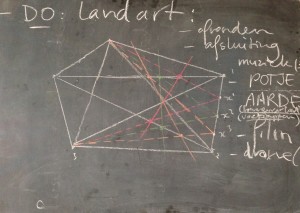 - DO: land art:
- afronden
- afsluiting
muziek
- POTJE
AARDE
- film
- drone(
1
x¹
x²
x³
2
3
C